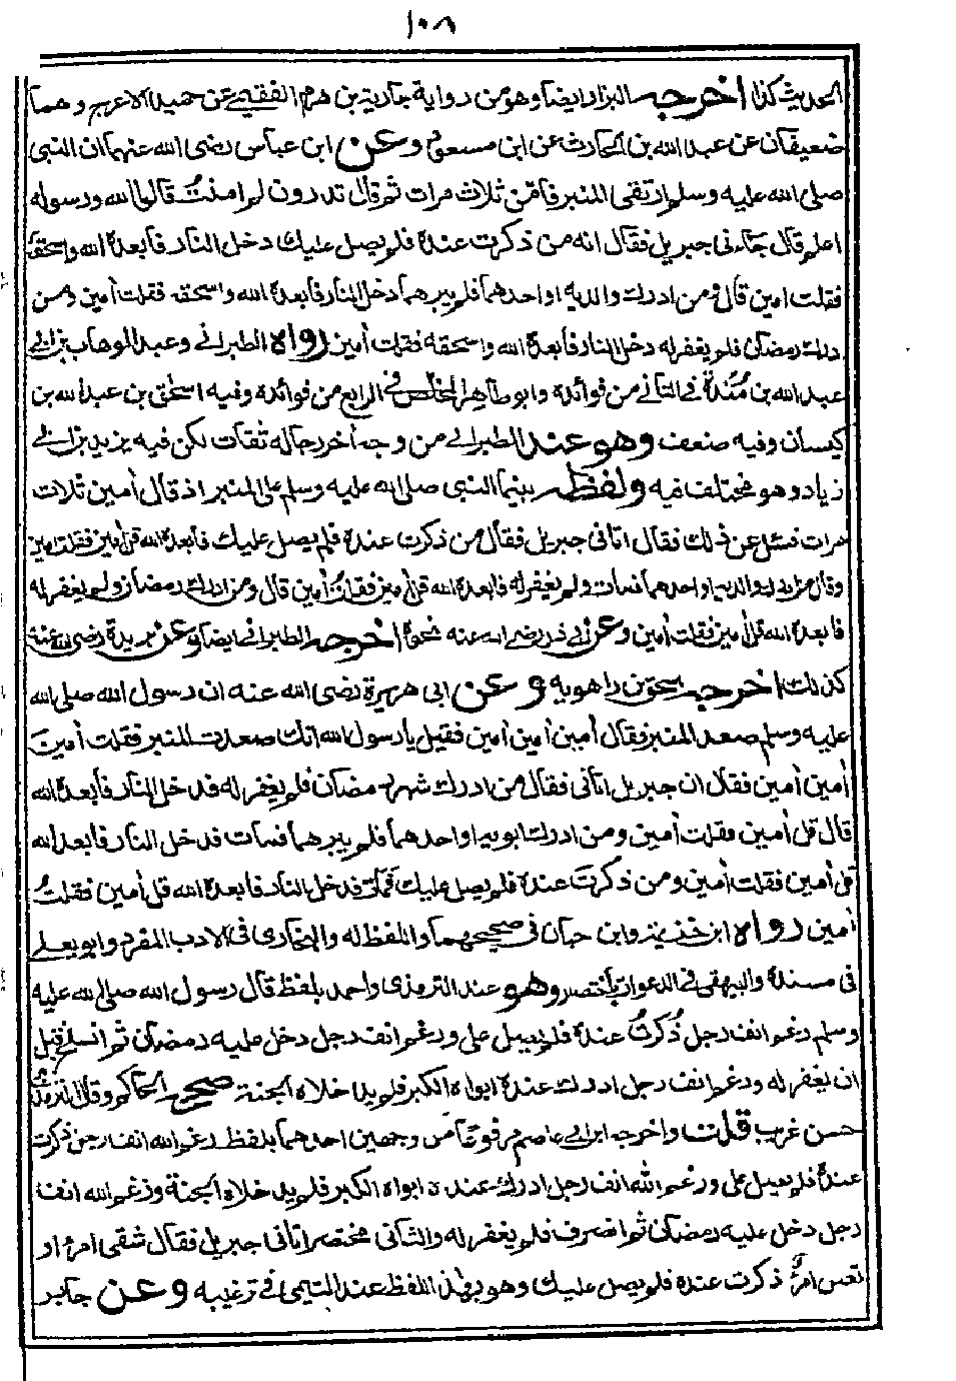 ١٠٨
الحديث كذا اخرجه البزار ايضا وهو من رواية جارية بن هرم الفقيمي عن حميد الاعرج وهما
ضعيفان عن عبد الله بن الحارث عن ابن مسعود وعن ابن عباس رضى الله عنهما ان النبى
صلى الله عليه وسلم ارتقى المنبر فامّن ثلاث مرات ثم قال تدرون لم امنتُ قالوا الله ورسوله
اعلم قال جاءنى جبريل فقال انه من ذكرت عنده فلم يصل عليك دخل النار فابعده الله واسحقه
فقلت امين قال ومن ادرك والديه او احدهما فلم يبرهما دخل النار فابعده الله واسحقه فقلت أمين ومن
درك رمضان فلم يغفر له دخل النار فابعده الله واسحقه فقلت أمين رواه الطبرانے وعبد الوهاب بن ابے
عبد الله بن مُنْدة فے الثانے من فوائده وابو طاهر المخلص فے الرابع من فوائده وفيه اسحٰق بن عبد الله بن
كيسان وفيه ضعف وهو عند الطبرانے من وجه أخر رجاله ثقات لكن فيه يزيد بن ابے
زياد وهو مختلف فيه ولفظه بينما النبى صلى الله عليه وسلم على المنبر اذ قال أمين ثلاث
مرات فسئل عن ذلك فقال اتانى جبريل فقال من ذكرت عنده فلم يصل عليك فابعده الله قل أمين فقلت امين
وقال من ادرك والديه او احدهما فمات ولم يغفر له فابعده الله قل أمين فقلت أمين قال ومن ادرك رمضان ولم يغفر له
فابعده الله قل أمين فقلت أمين وعن ابے ذر رضے الله عنه نحوه اخرجه الطبرانے ايضا وعن بريدة رضى الله عنه
كذلك اخرجه اسحق بن راهويه وعن ابى هريرة رضى الله عنه ان رسول الله صلى الله
عليه وسلم صعد المنبر فقال أمين أمين أمين فقيل يا رسول الله انك صعدت المنبر فقلت أمين
أمين أمين فقال ان جبريل اتانى فقال من ادرك شهر رمضان فلم يغفر له فدخل النار فابعده الله
قال قل أمين فقلت أمين ومن ادرك ابويه او احدهما فلم يبرهما فمات فدخل النار فابعد الله
قل أمين فقلت أمين ومن ذكرت عنده فلم يصل عليك فمات فدخل النار فابعده الله قل أمين فقلتُ
أمين رواه ابن خزيمة وابن حبان فى صحيحيهما واللفظ له والبخارى فى الادب المفرد وابو يعلے
فى مسنده والبيهقى فے الدعوات باختصار وهو عند الترمذى واحمد بلفظ قال رسول الله صلى الله عليه
وسلم رغم انف رجل ذُكرتُ عنده فلم يصل على ورغم انف رجل دخل عليه رمضان ثم انسلخ قبل
ان يغفر له ورغم انف رجل ادرك عنده ابواه الكبر فلم يدخلاه الجنة صححه الحاكم وقال الترمذى
حسن غريب قلت واخرجه ابن ابے عاصم مرفوعا من وجهين احدهما بلفظ رغم الله انف رجل ذكرت
عنده فلم يصل على ورغم الله انف رجل ادرك عنده ابواه الكبر فلم يدخلاه الجنة ورغم الله انف
رجل دخل عليه رمضان ثم انصرف فلم يغفر له والثانى مختصر اتانى جبريل فقال شقى امرؤ او
تعس امرؤ ذكرت عنده فلم يصل عليك وهو بهذا اللفظ عند التيمى فے ترغيبه وعن جابر